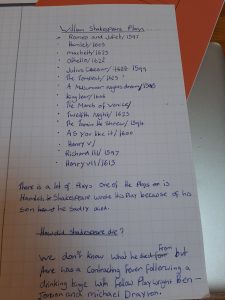 William Shakespeare Plays
• Romeo and Juliet/1597
• Hamlet/1603
• Macbeth/1623
• Othello/1622
• Julius Caesar/1623 1599
• The Tempest/1623
• A Midsummer nights dream/1595
• King lear/1606
• The March of Venice/
• Twelfth Night/1623
• The Taming the Shrew/1594
• As you like it/1600
• Henry V/
• Richard III/1597
• Henry VIII/1613
There is a lot of Plays one of the Plays on is
Hamlet, Shakespeare wrote this Play because of his
son he Sadly died.
How did Shakespeare die?
We don't know what he died from but
there was a contracting fever following a
drinking binge with fellow Playwrights ben –
Jonson and michael Drayton.